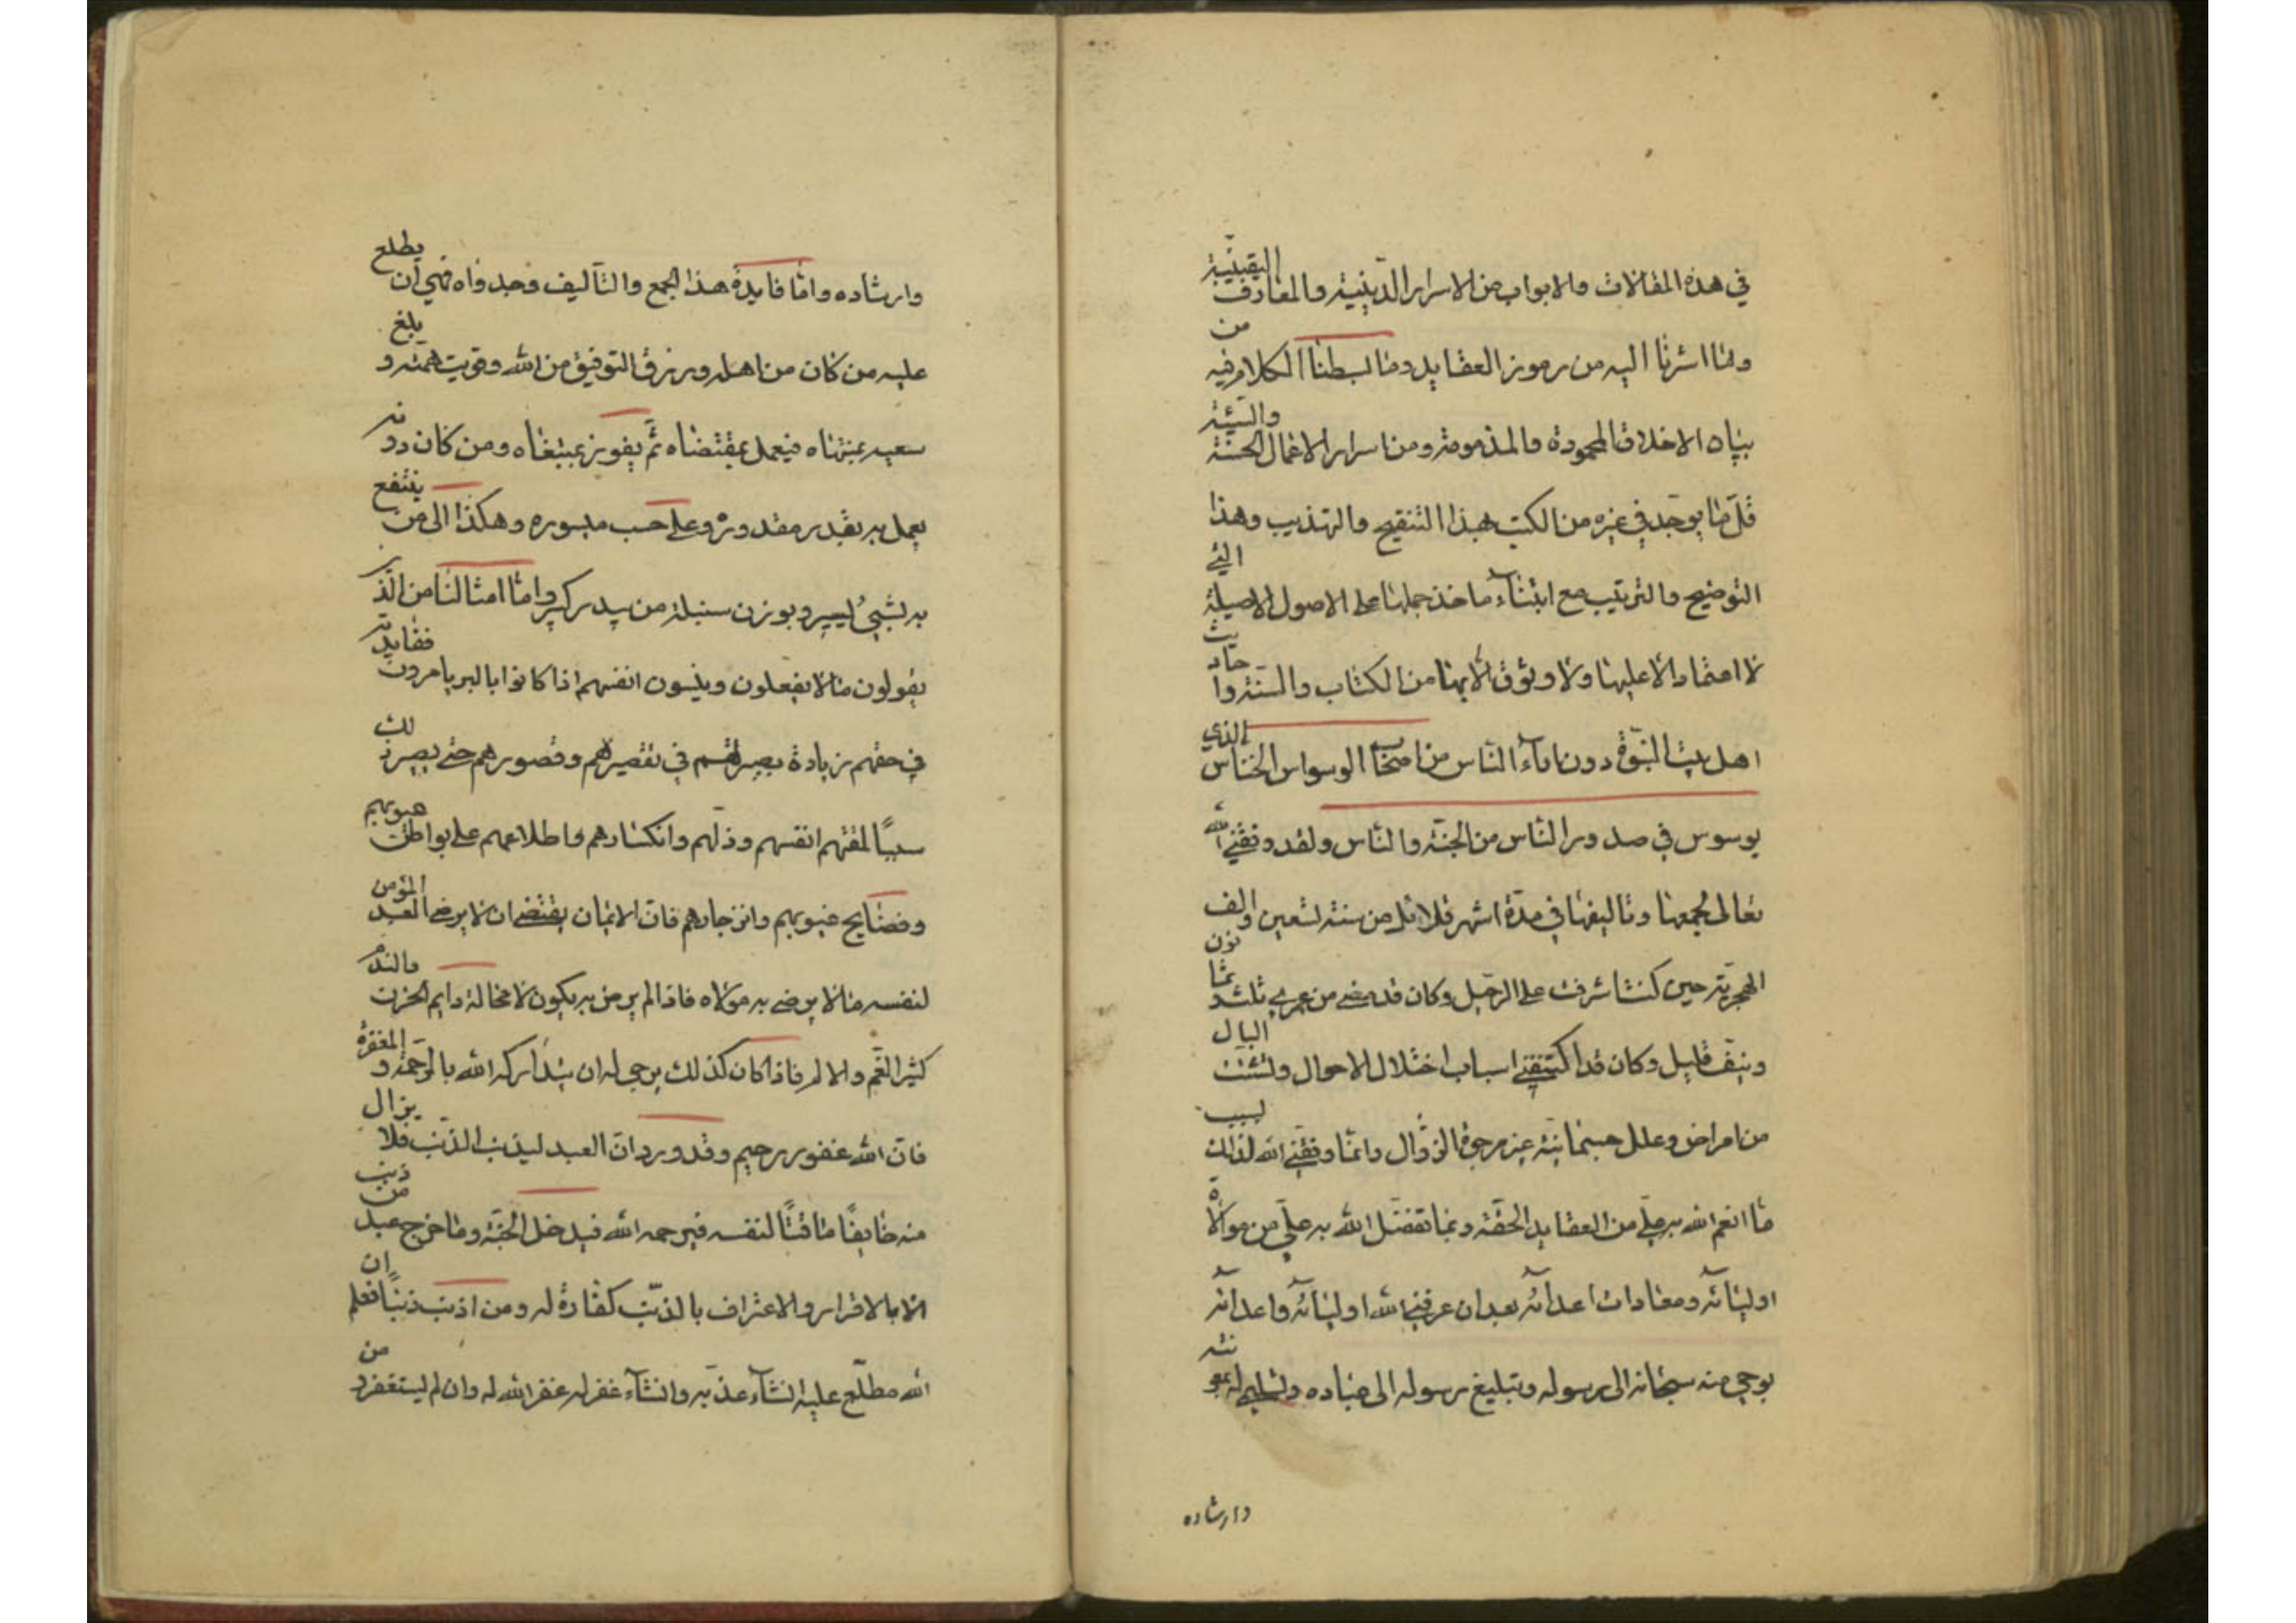 في هذه المقالات والابواب من الاسرار الدّينيّة والمعارف اليقينيّة
ولما اشرنا اليه من رموز العقايد وما بسطنا الكلام فيه من
بيان الاخلاق المحمودة والمذمومة ومن اسرار الاعمال الحسنة والسّيّئة
قلّ ما يوجد في غيره من الكتب بهذا التنقيح والتهذيب وهذا
التوضيح والترتيب مع ابتناء ماخذ جملتها على الاصول الاصيلة الّتي
لا اعتماد الّا عليها ولا وثوق الّا بها من الكتاب والسنّة واحاديث
اهل بيت النبوّة دون اراء النّاس من اصحاب الوسواس الخنّاس الذي
يوسوس في صدور النّاس من الجنّة والنّاس ولقد وفّقني الله
تعالى لجمعها وتاليفها في مدّة اشهر قلائل من سنة تسعين والف
الهجريّة حين كنت اشرفت على الرحيل وكان قد مضى من عمري ثلثة وثمانون
ونيّف قليل وكان قد اكتنفني اسباب اختلال الاحوال وتشتّت البال
من امراض وعلل جسمانيّة غير مرجوّة الزوال وانّما وفّقني الله لذلك بسبب
ما انعم الله به عليّ من العقايد الحقّة وبما تفضّل الله به عليّ من موالاة
اوليائه ومعادات اعدائه بعد ان عرفني الله اوليائه واعدائه
بوحي منه سبحانه الى رسوله وتبليغ رسوله الى عباده وتسليم له بمعونته
وارشاده
وارشاده وامّا فايدة هذا الجمع والتّاليف وجدواه فهي ان يطلع
عليه من كان من اهله ورزق التوفيق من الله وقويت همّته وبلغ
سعيه منتهاه فيعمل بمقتضاه ثمّ يفوز بمبتغاه ومن كان دونه
يعمل به بقدر مقدوره وعلى حسب ميسوره وهكذا الى من ينتفع
به بشيئ يسير وبوزن سنبلة من بيدر كبير وامّا امثالنا من الّذين
يقولون ما لا يفعلون وينسون انفسهم اذا كانوا بالبر يامرون ففايدته
في حقهم زيادة بصيرتهم في تقصيرهم وقصورهم حتّى يصير ذلك
سببًا لمقتهم انفسهم وذلّهم وانكسارهم واطلاعهم على بواطن عيوبهم
وفضايح عيوبهم وانزجارهم فانّ الايمان يقتضي ان لا يرضى العبد المؤمن
لنفسه ما لا يرضى به مولاه فاذا لم يرض به يكون لا محالة دايم الحزن والندم
كثير الغّم والالم فاذا كان كذلك يرجى له ان يتدارکه الله بالرّحمة والمغفرة
فانّ الله غفور رحيم وقد ورد انّ العبد ليذنب الذّنب فلا يزال
منه خايفًا ماقتًا لنفسه فيرحمه الله فيدخل الجنّة وما خرج عبد من ذنب
الا بالاقرار والاعتراف بالذنب كفّارة له ومن اذنب ذنبًا فعلم ان
الله مطلّع عليه ان شاء عذّبه وان شاء غفر له غفر الله له وان لم يستغفر ومن